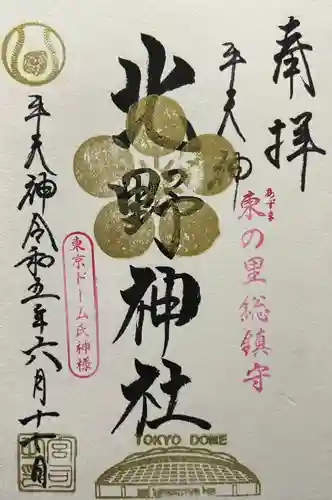 奉拝
牛天神
あずま
東の里総鎮守
北野神社
牛天神令和五年六月十七日
東京ドーム氏神様
TOKYO DOME